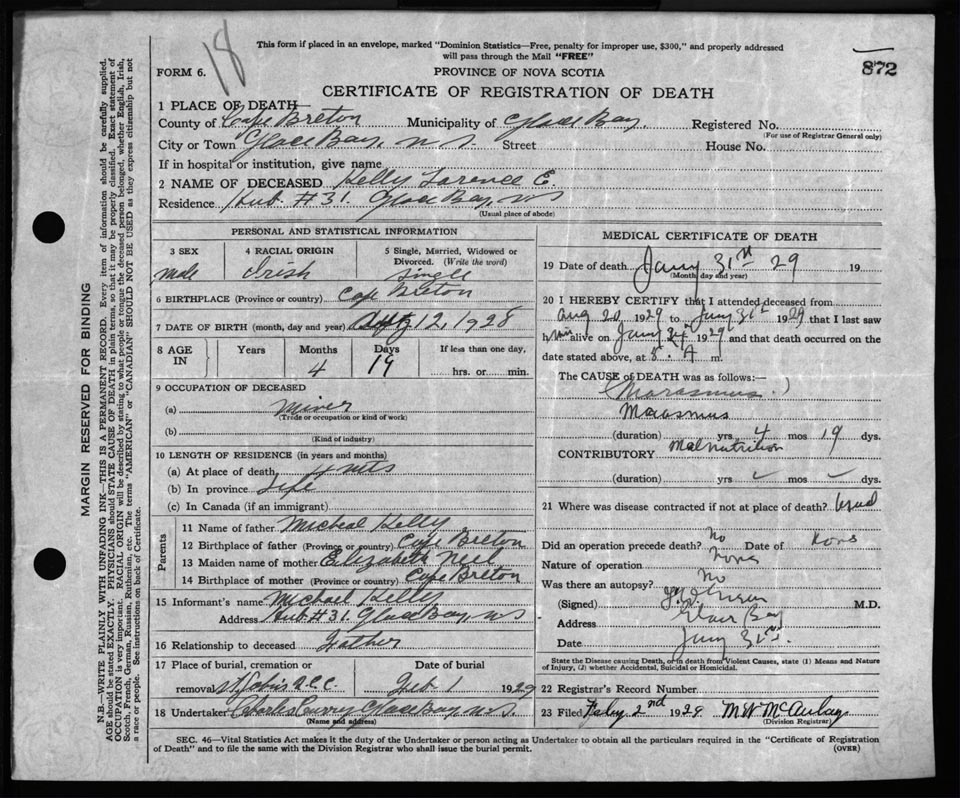 18
This form if placed in an envelope, marked "Dominion Statistics—Free, penalty for improper use, $300," and properly addressed
will pass through the Mail "FREE"
872
FORM 6.
PROVINCE OF NOVA SCOTIA
CERTIFICATE OF REGISTRATION OF DEATH
1 PLACE OF DEATH—
County of Cape Breton Municipality of Glace Bay. Registered No.
(For use of Registrar General only)
City or Town Glace Bay, N S. Street House No.
If in hospital or institution, give name
2 NAME OF DECEASED Kelly Larence E.
Residence Hub. #31. Glace Bay, N S
(Usual place of abode)
PERSONAL AND STATISTICAL INFORMATION
3 SEX 4 RACIAL ORIGIN 5 Single, Married, Widowed or
Divorced. (Write the word)
Male Irish Single
6 BIRTHPLACE (Province or country) Cape Breton
7 DATE OF BIRTH (month, day and year) Aug 12, 1928
8 AGE IN Years Months Days If less than one day,
4 19 hrs. or min.
9 OCCUPATION OF DECEASED
(a) Miner
(Trade or occupation or kind of work)
(b)
(Kind of industry)
10 LENGTH OF RESIDENCE (in years and months)
(a) At place of death 4 mts
(b) In province Life
(c) In Canada (if an immigrant)
Parents
11 Name of father Micheal Kelly
12 Birthplace of father (Province or country) Cape Breton
13 Maiden name of mother Elizabeth Neil
14 Birthplace of mother (Province or country) Cape Breton
15 Informant's name Michael Kelly
Address Hub #31. Glace Bay, N S
16 Relationship to deceased Father
17 Place of burial, cremation or Date of burial
removal Feb 1 1929
18 Undertaker Charles Curry Glace Bay, N.S.
(Name and address)
MEDICAL CERTIFICATE OF DEATH
19 Date of death Jany 31st 29 19
(Month, day and year)
20 I HEREBY CERTIFY that I attended deceased from
Aug 20 1929 to Jany 31st 1929 that I last saw
him alive on Jany 1929 and that death occurred on the
date stated above, at 5. A m.
The CAUSE of DEATH was as follows:—
(Marasmus.)
Marasmus
(duration) yrs 4 mos 19 dys.
CONTRIBUTORY Malnutrition
(duration) yrs mos dys.
21 Where was disease contracted if not at place of death?
Did an operation precede death? No Date of
Nature of operation None
Was there an autopsy? No
(Signed) M.D.
Address Glace Bay
Date Jany 31st.
State the Disease causing Death, or in death from Violent Causes, state (1) Means and Nature
of Injury, (2) whether Accidental, Suicidal or Homicidal.
22 Registrar's Record Number
23 Filed Feby 2nd 1929 M W McAulay
(Division Registrar)
SEC. 46—Vital Statistics Act makes it the duty of the Undertaker or person acting as Undertaker to obtain all the particulars required in the "Certificate of Registration
of Death" and to file the same with the Division Registrar who shall issue the burial permit.
(OVER)
MARGIN RESERVED FOR BINDING
N.B—WRITE PLAINLY WITH UNFADING INK—THIS IS A PERMANENT RECORD. Every item of information should be carefully supplied.
AGE should be stated EXACTLY. PHYSICIANS should STATE CAUSE OF DEATH in plain terms, so that it may be properly classified. Exact statement of
OCCUPATION is very important. RACIAL ORIGIN will be described by stating to what people or tongue the deceased person belonged, whether English, Irish,
Scotch, French, German, Russian, Ruthenian, etc. The terms "AMERICAN" or "CANADIAN" SHOULD NOT BE USED as they express citizenship but not
a race or people. See instructions on back of Certificate.